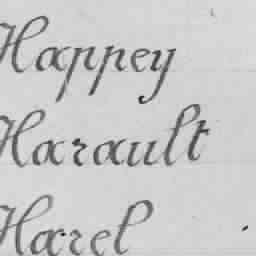 Happey
Harault
Harel